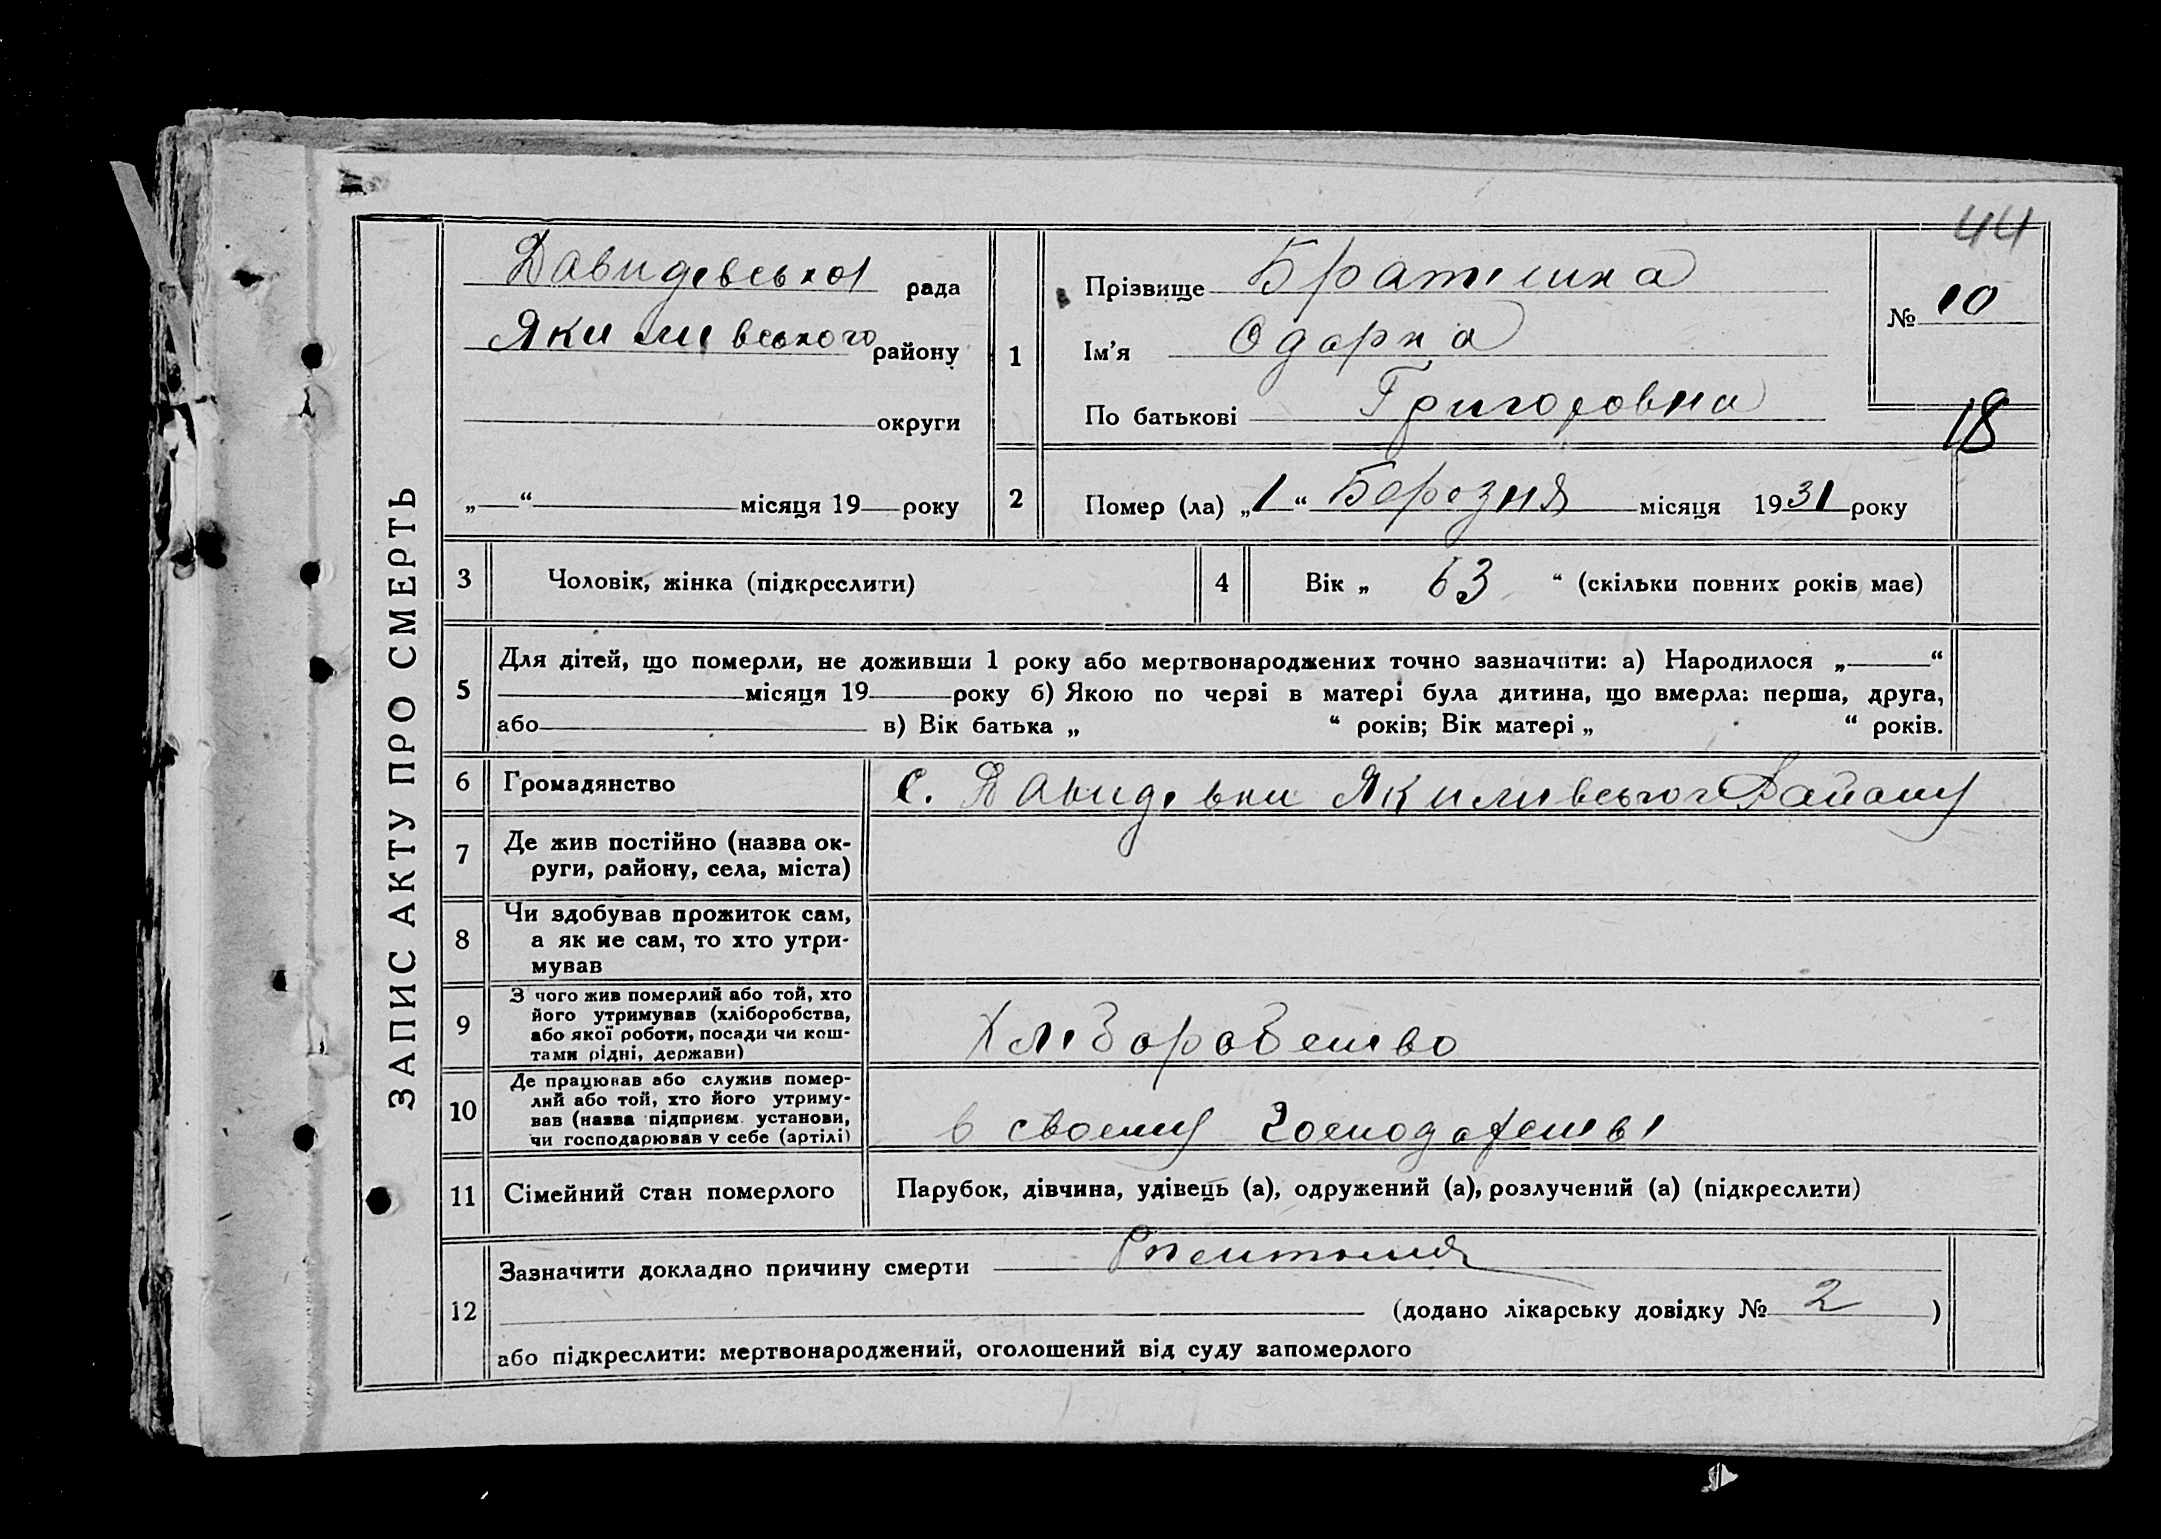 44
ЗАПИС АКТУ ПРО СМЕРТЬ
Давидовська рада
Якимівського району
округи
„ “ місяця 19 року
1
Прізвище Братішка
Ім'я Одарка
По батькові Григоровна
№ 10
18
2
Помер (ла) „1“ Березня місяця 1931 року
3
Чоловік, жінка (підкреслити)
4
Вік „ 63 “ (скільки повних років має)
5
Для дітей, що померли, не доживши 1 року або мертвонароджених точно зазначити: а) Народилося „ “
місяця 19 року б) Якою по черзі в матері була дитина, що вмерла: перша, друга,
або в) Вік батька „ “ років; Вік матері „ “ років.
6
Громадянство
С. Давидівки Якимівського Району
7
Де жив постійно (назва ок-
руги, району, села, міста)
8
Чи здобував прожиток сам,
а як не сам, то хто утри-
мував
9
З чого жив померлий або той, хто
його утримував (хліборобства,
або якої роботи, посади чи кош-
тами рідні, держави)
Хліборобство
10
Де працював або служив помер-
лий або той, хто його утриму-
вав (назва підприєм. установи,
чи господарював у себе (артілі)
в своєму господарстві
11
Сімейний стан померлого
Парубок, дівчина, удівець (а), одружений (а), розлучений (а) (підкреслити)
12
Зазначити докладно причину смерти
(додано лікарську довідку № 2 )
або підкреслити: мертвонароджений, оголошений від суду запомерлого